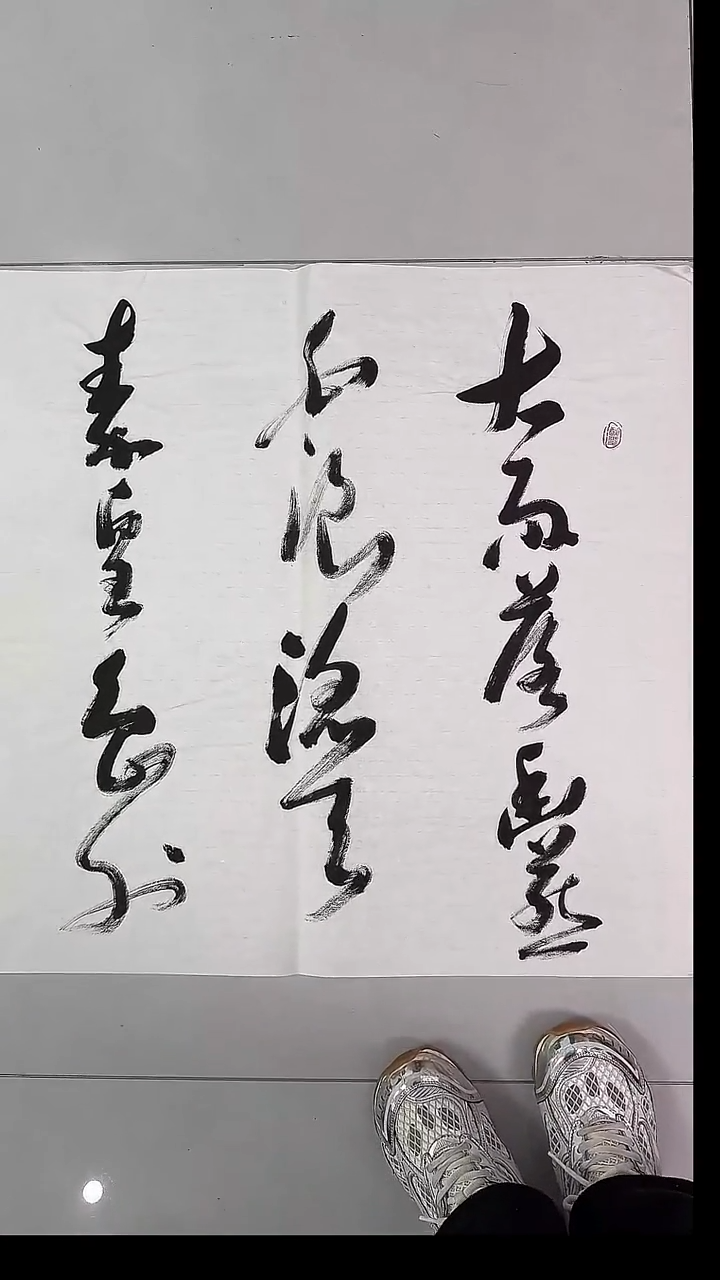 大雨落幽燕
白浪滔天
秦皇岛外